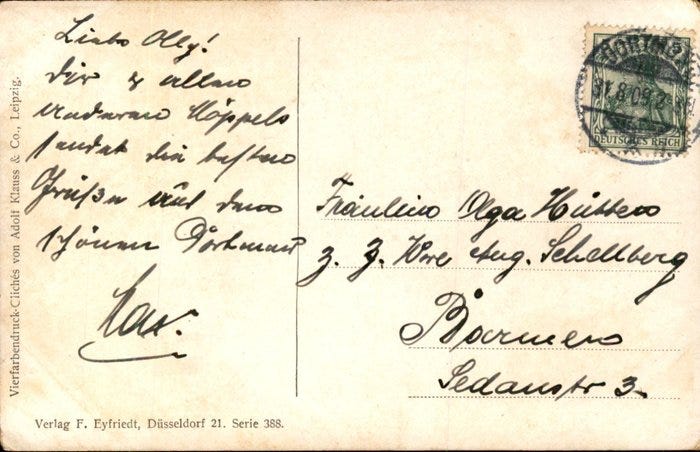 Liebe Olly!
Dir & allen
anderen Köppels
sendet die besten
Grüße aus dem
schönen Dortmund
Max.
Vierfarbendruck-Clichés von Adolf Klauss & Co., Leipzig.
Verlag F. Eyfriedt, Düsseldorf 21. Serie 388.
DORTMUND
11.8.09.
DEUTSCHES REICH
Fräulein Olga Hütten
z. Z. Wwe Aug. Schellberg
Barmen
Sedanstr 3.